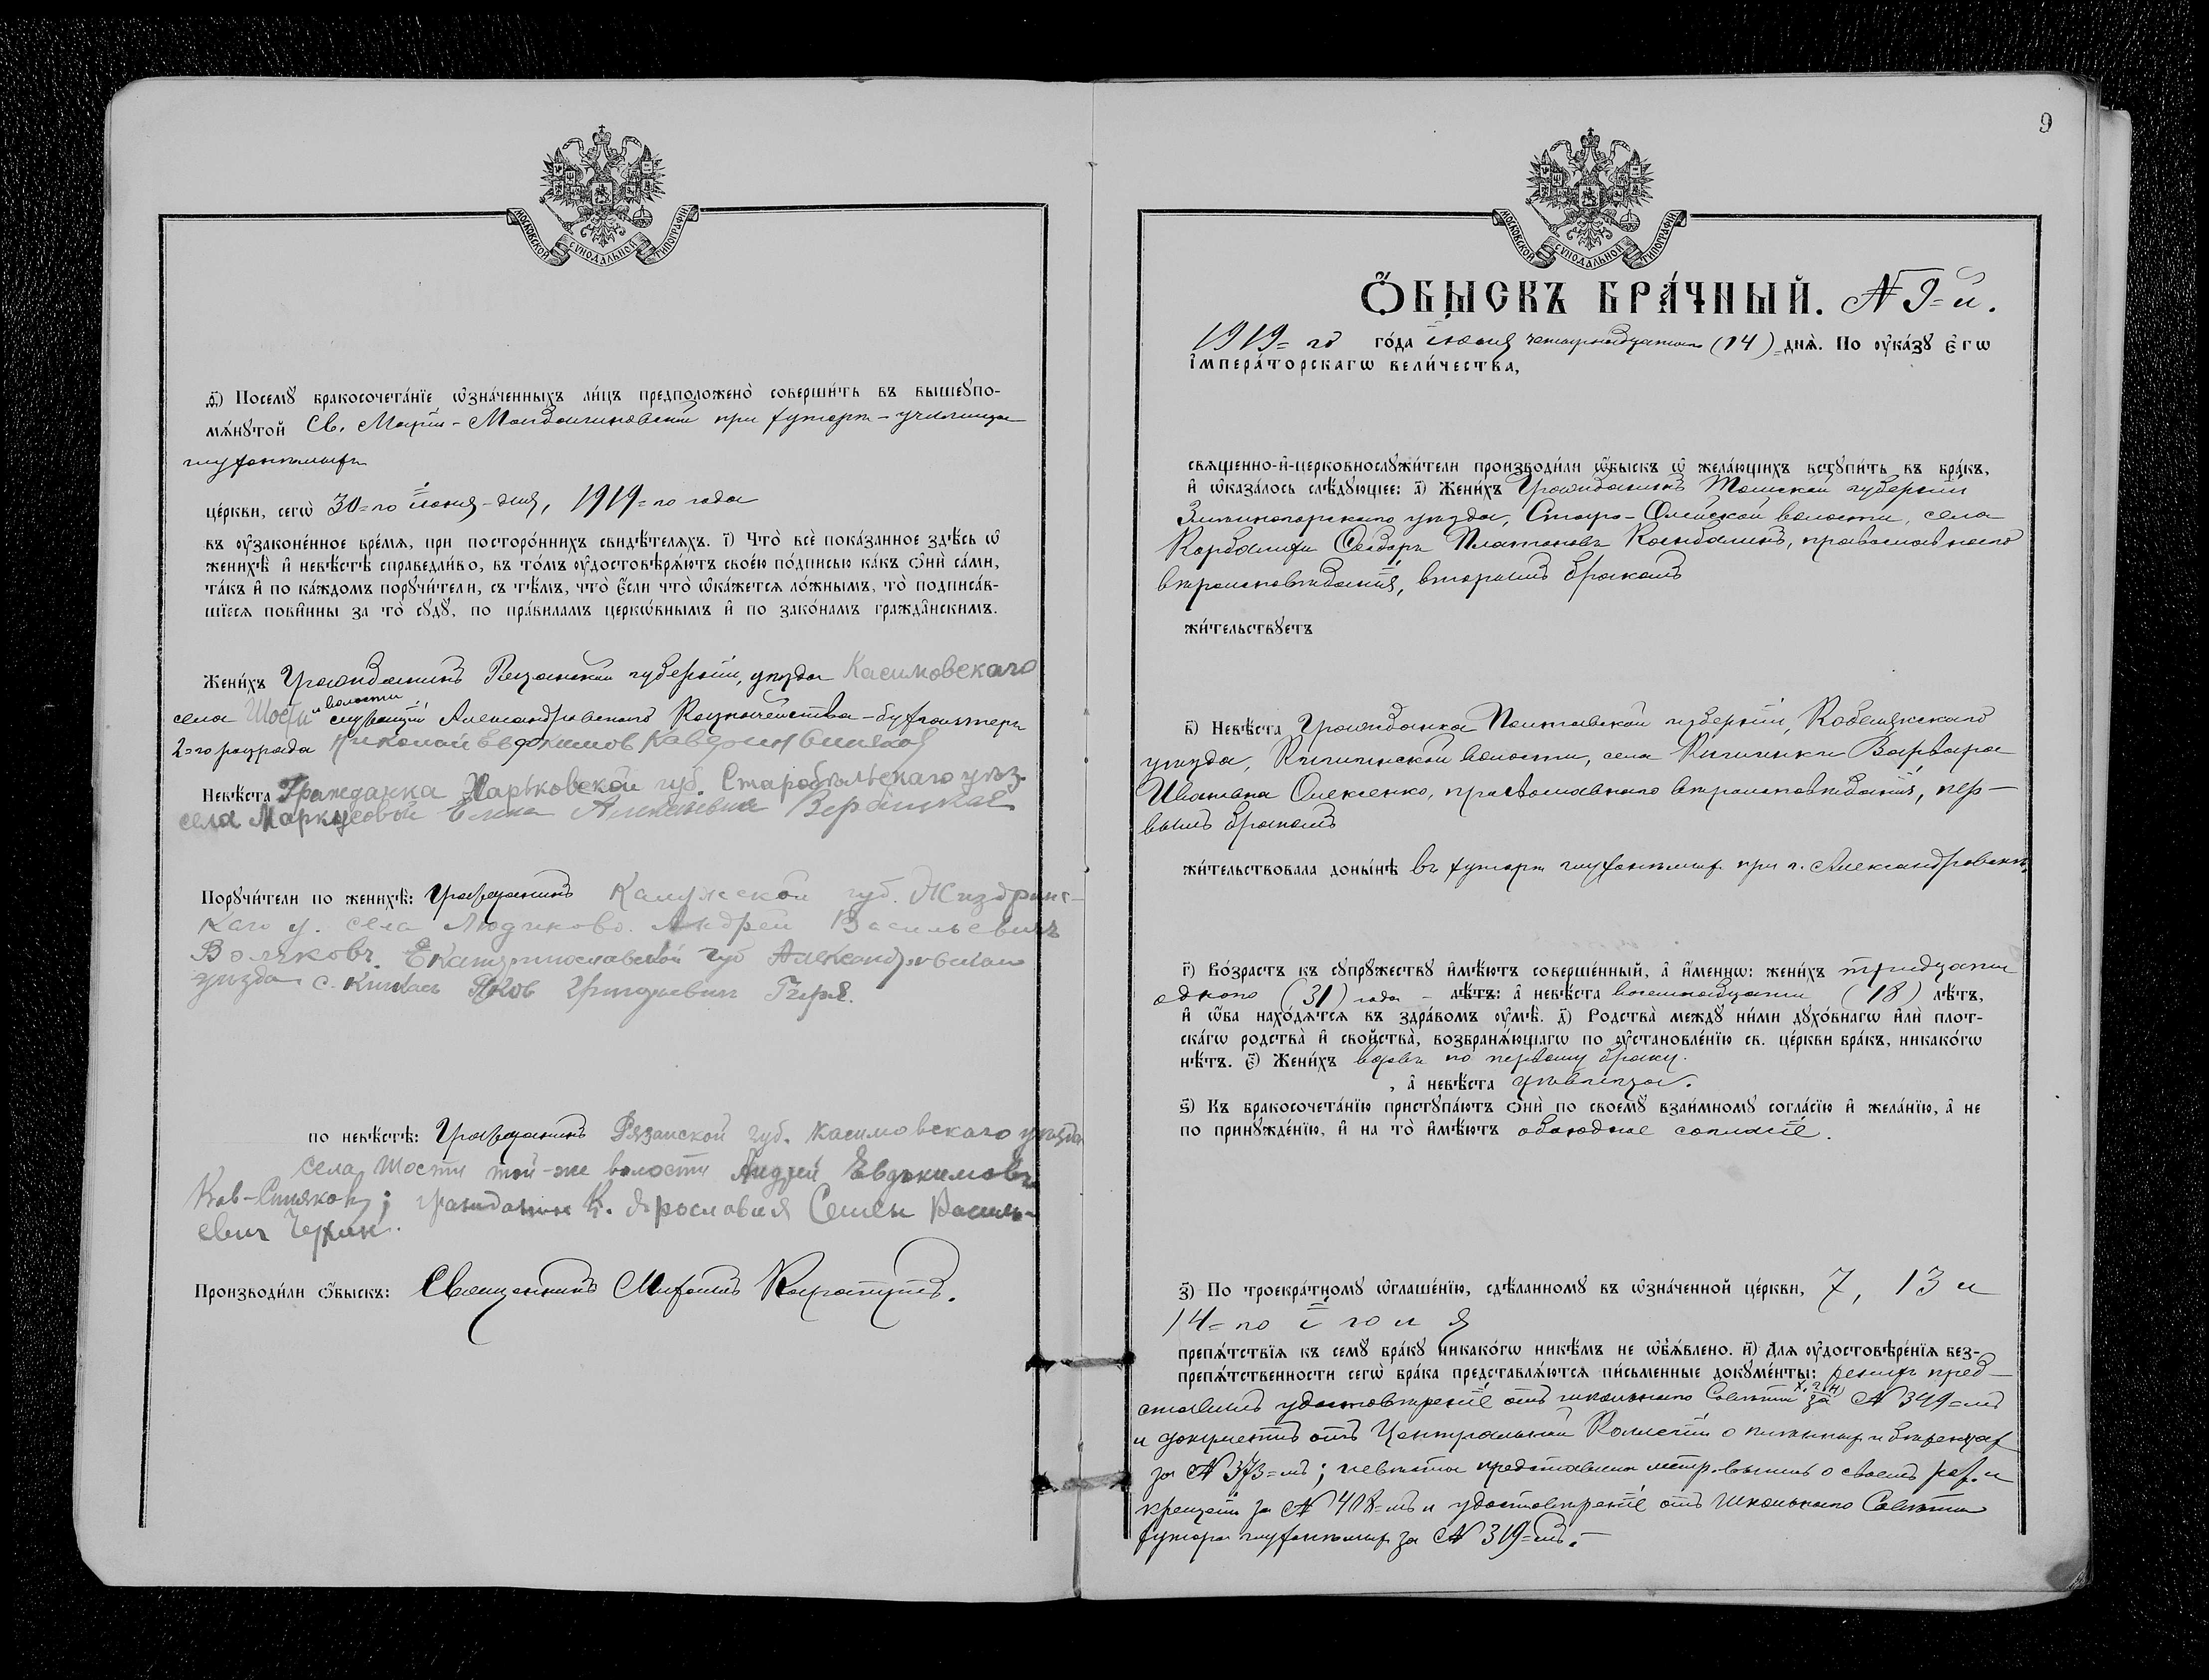 МОСКОВСКОЙ СѴНОДАЛЬНОЙ ТИПОГРАФІИ
ѳ҃) Посемꙋ бракосочета́нїе ѡ҆зна́ченныхъ ли́цъ предположено̀ соверши́ть въ вышеꙋпо-
мѧ́нꙋтой Св. Маріи-Магдалиновской при хуторѣ-училищѣ
глухонѣмыхъ
це́ркви, сегѡ̀ 30=го іюня-дня, 1919=го года
въ ᲂу҆зако́ненное вре́мѧ, при посторо́ннихъ свидѣ́телѧхъ. і҃) Что̀ всѐ пока́занное здѣ́сь ѡ҆
женихѣ̀ и҆ невѣ́стѣ справедли́во, въ то́мъ ᲂу҆достовѣрѧ́ютъ свое́ю по́дписью ка́къ ѻ҆нѝ са́ми,
та́къ и҆ по ка́ждомъ порꙋчи́тели, съ тѣ́мъ, что̀ є҆́сли что̀ ѡ҆ка́жетсѧ ло́жнымъ, то̀ подписа́в-
шїесѧ пови́нны за то̀ сꙋдꙋ̀, по пра́виламъ церко́внымъ и҆ по зако́намъ гражда́нскимъ.
Жени́хъ Гражданинъ Рязанской губерніи, уѣзда Касимовскаго
села Шости и волости служащій Александровскаго Казначейства-бухгалтеръ
2=го разряда Николай Евдокимов
Невѣ́ста Гражданка Харьковской губ. Старобѣльскаго уѣз.
села Елена
Порꙋчи́тели по женихѣ̀: Гражданинъ Калужской губ. Жиздринс-
каго у. села Людиково. Андрей Васильевичъ
Екатеринославской губ Александровскаго
уѣзда с. Яков
по невѣ́стѣ: Гражданинъ Рязанской губ. Касимовскаго уѣзда
села Шости той-же волости Андрей Евдокимовъ
гражданин г. Ярославля Семен Василь-
евич
Производи́ли ѻ҆́быскъ: Священникъ
9
МОСКОВСКОЙ СѴНОДАЛЬНОЙ ТИПОГРАФІИ
Ѻ҆́БЫСКЪ БРА́ЧНЫЙ. № 9=й.
1919=го го́да іюня четырнадцатаго (14) днѧ̀. По ᲂу҆ка́зꙋ є҆гѡ̀
І҆мпера́торскагѡ вели́чества,
свѧще́нно-и҆-церковнослꙋжи́тели производи́ли ѡ҆́быскъ ѡ҆ жела́ющихъ встꙋпи́ть въ бра́къ,
и҆ ѡ҆каза́лось слѣ́дꙋющее: а҃) Жени́хъ Гражданинъ Томской губерніи
Змѣиногорскаго уѣзда, волости, села
Карболихи Ѳеодоръ Платоновъ православнаго
вѣроисповѣданія, вторымъ бракомъ
жи́тельствꙋетъ
в҃) Невѣ́ста Гражданка Полтавской губерніи, Кобелякскаго
уѣзда, волости, села Варвара
Ивановна православнаго вѣроисповѣданія, пер-
вымъ бракомъ
жи́тельствовала доны́нѣ въ хуторѣ глухонѣмыхъ при г. Александровскѣ
г҃) Во́зрастъ къ сꙋпрꙋ́жествꙋ и҆мѣ́ютъ соверше́нный, а҆ и҆́меннѡ: жени́хъ тридцати
одного (31) года — лѣ́тъ: а҆ невѣ́ста восемнадцати (18) лѣ́тъ,
и҆ ѻ҆́ба нахо́дѧтсѧ въ здра́вомъ ᲂу҆мѣ̀. д҃) Родства̀ междꙋ̀ ни́ми дꙋхо́внагѡ и҆лѝ плот-
ска́гѡ родства̀ и҆ сво́йства, возбранѧ́ющагѡ по ᲂу҆становле́нїю св. це́ркви бра́къ, никако́гѡ
нѣ́тъ. є҃) Жени́хъ вдовъ по первому браку.
, а҆ невѣ́ста дѣвица.
ѕ҃) Къ бракосочета́нїю пристꙋпа́ютъ ѻ҆нѝ по своемꙋ̀ взаи́мномꙋ согла́сїю и҆ жела́нїю, а҆ не
по принꙋжде́нїю, и҆ на то̀ и҆мѣ́ютъ обоюдное согласіе.
з҃) По троекра́тномꙋ ѡ҆глаше́нїю, сдѣ́ланномꙋ въ ѡ҆зна́ченной це́ркви, 7, 13 и
14=го іюня
препѧ́тствїѧ къ семꙋ̀ бра́кꙋ никако́гѡ никѣ́мъ не ѡ҆б̾ѧ́влено. и҃) Для ᲂу҆достовѣре́нїѧ без-
препѧ́тственности сегѡ̀ бра́ка представлѧ́ютсѧ пи́сьменные докꙋме́нты: женихъ пред-
ставилъ удостовѣреніе отъ школьнаго Совѣта за № 349=мъ
и документъ отъ Центральной Коллегіи о плѣнныхъ и бѣженцахъ
за № 373=мъ; невѣста представила метр. выпись о своемъ рож. и
крещеніи за № 408=мъ и удостовѣреніе отъ Школьнаго Совѣта
хутора глухонѣмыхъ за № 319=мъ.—